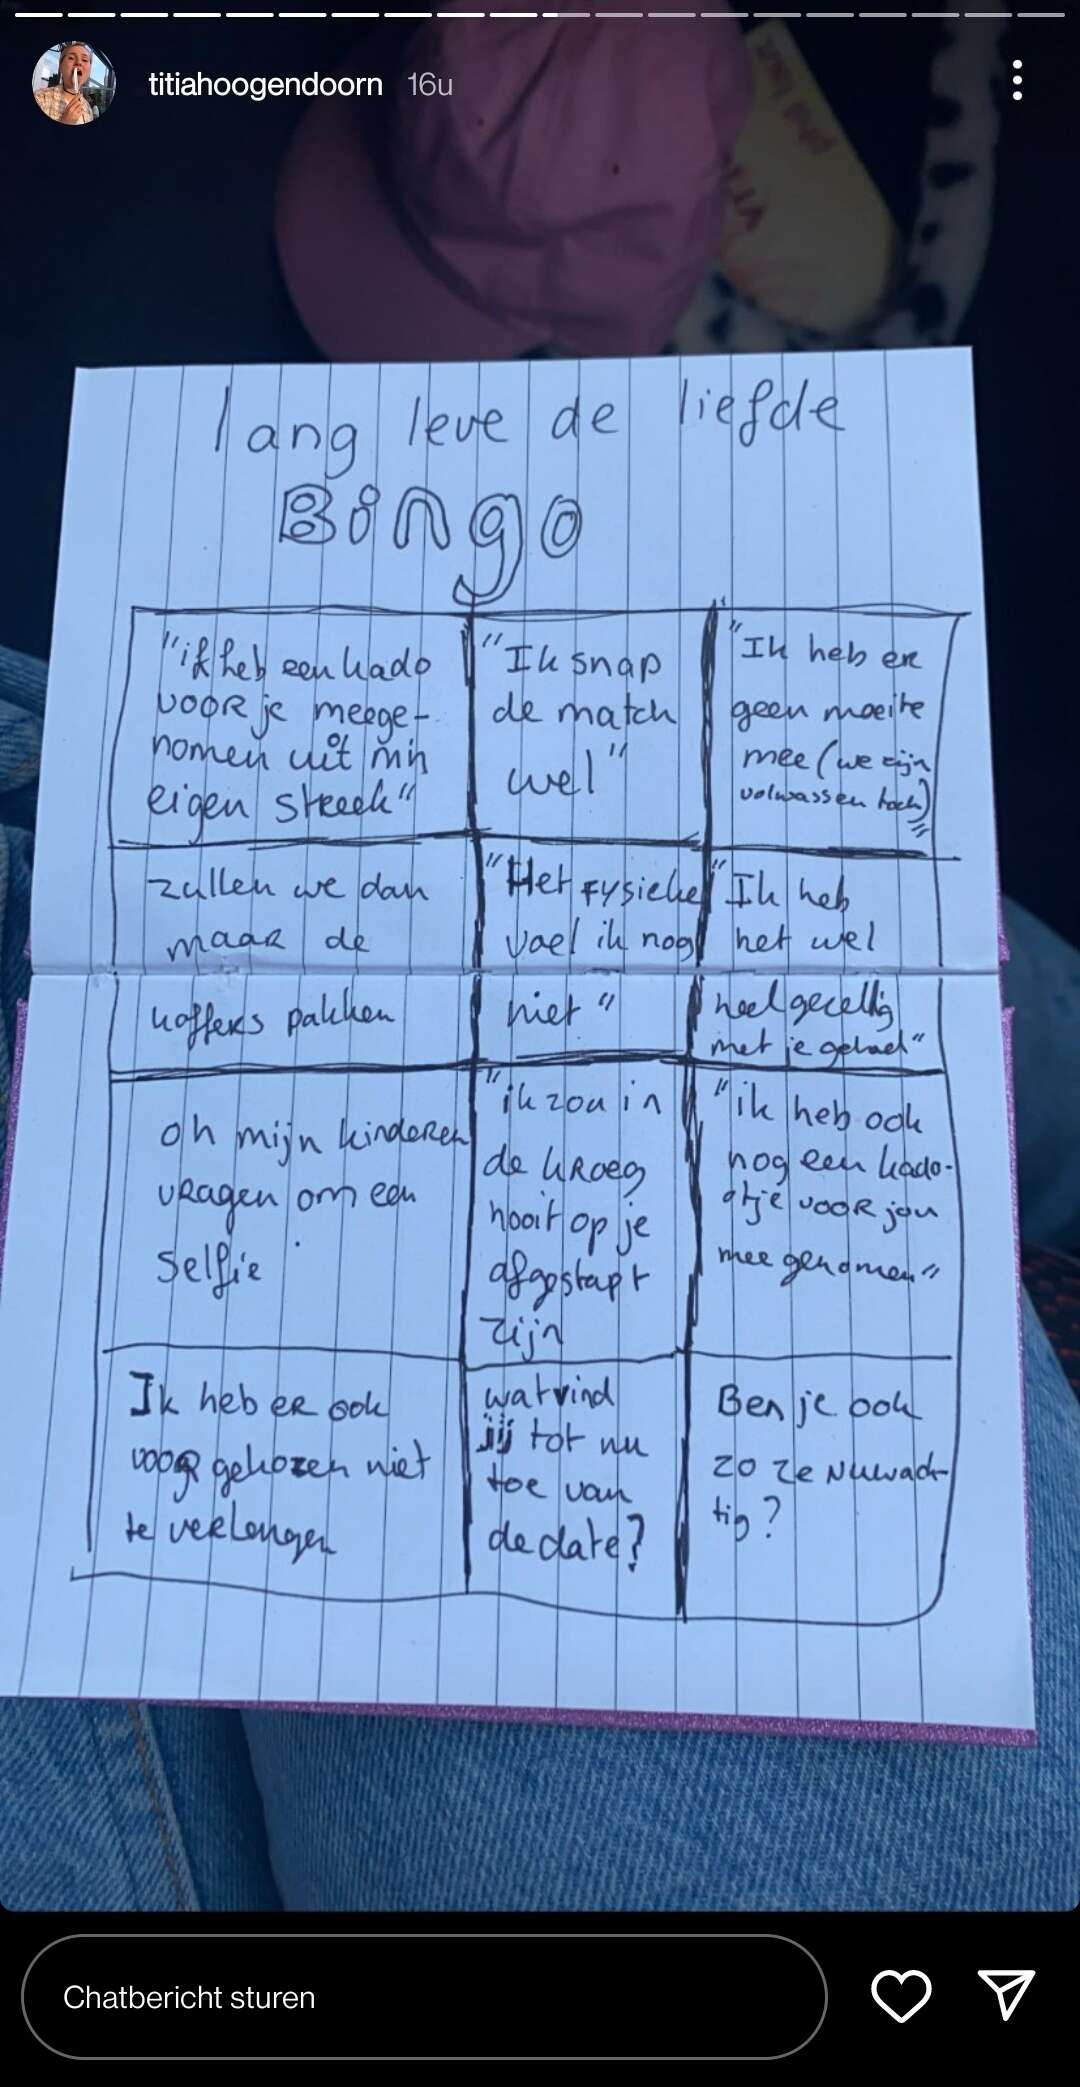 titiahoogendoorn 16u
lang leve de liefde
Bingo
"ik heb een kado
voor je meege-
nomen uit mijn
eigen streek"
"Ik snap
de match
wel"
"Ik heb er
geen moeite
mee (we zijn
volwassen toch)"
zullen we dan
maar de
koffers pakken
"Het fysieke
voel ik nog
niet"
"Ik heb
het wel
heel gezellig
met je gehad"
oh mijn kinderen
vragen om een
selfie
"ik zou in
de kroeg
nooit op je
afgestapt
zijn
"ik heb ook
nog een kado-
otje voor jou
mee genomen"
Ik heb er ook
voor gekozen niet
te verlengen
wat vind
jij tot nu
toe van
de date?
Ben je ook
zo zenuwach-
tig?
Chatbericht sturen